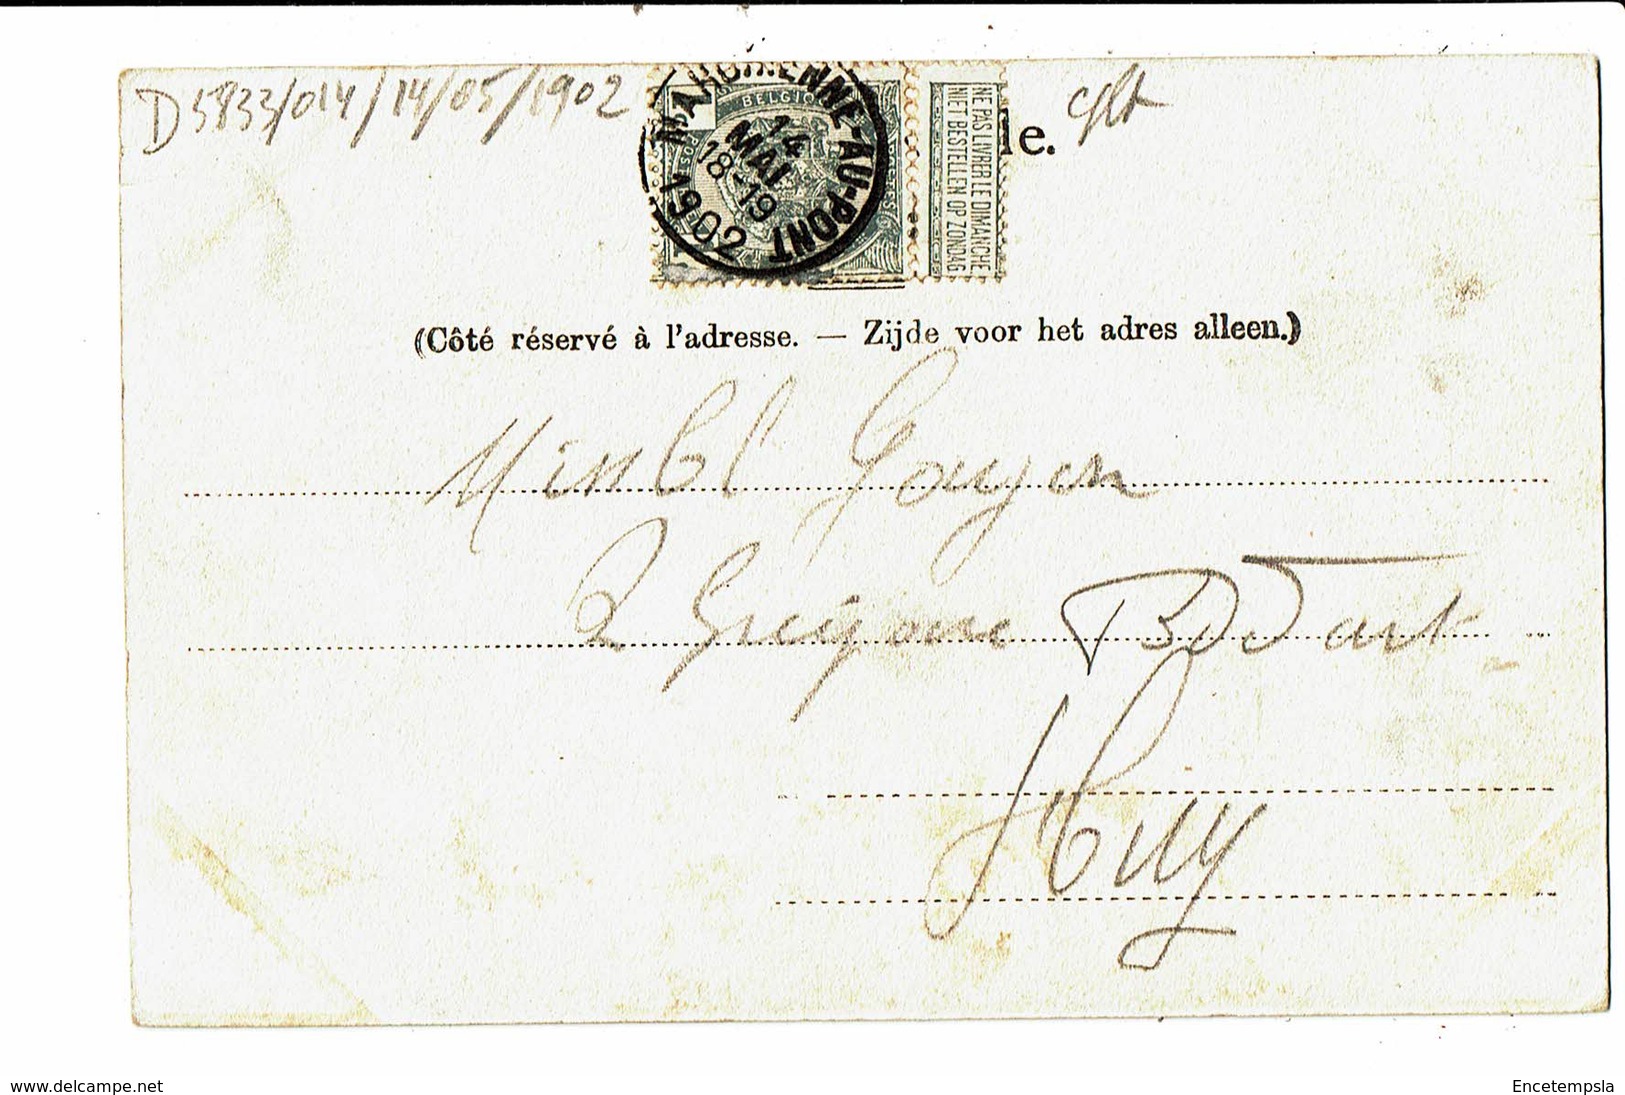 D 5833/014/14/05/1902
MARCHIENNE-AU-PONT
14
MAI
18-19
1902
BELGIQUE
NE PAS LIVRER LE DIMANCHE
NIET BESTELLEN OP ZONDAG
e.
(Côté réservé à l'adresse. — Zijde voor het adres alleen.)
Gouyen
2 Grégoire Bodart
Huy
www.delcampe.net
Encetempsla